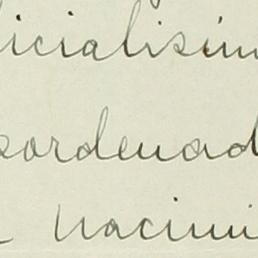 icialism
sordenad
nacimi